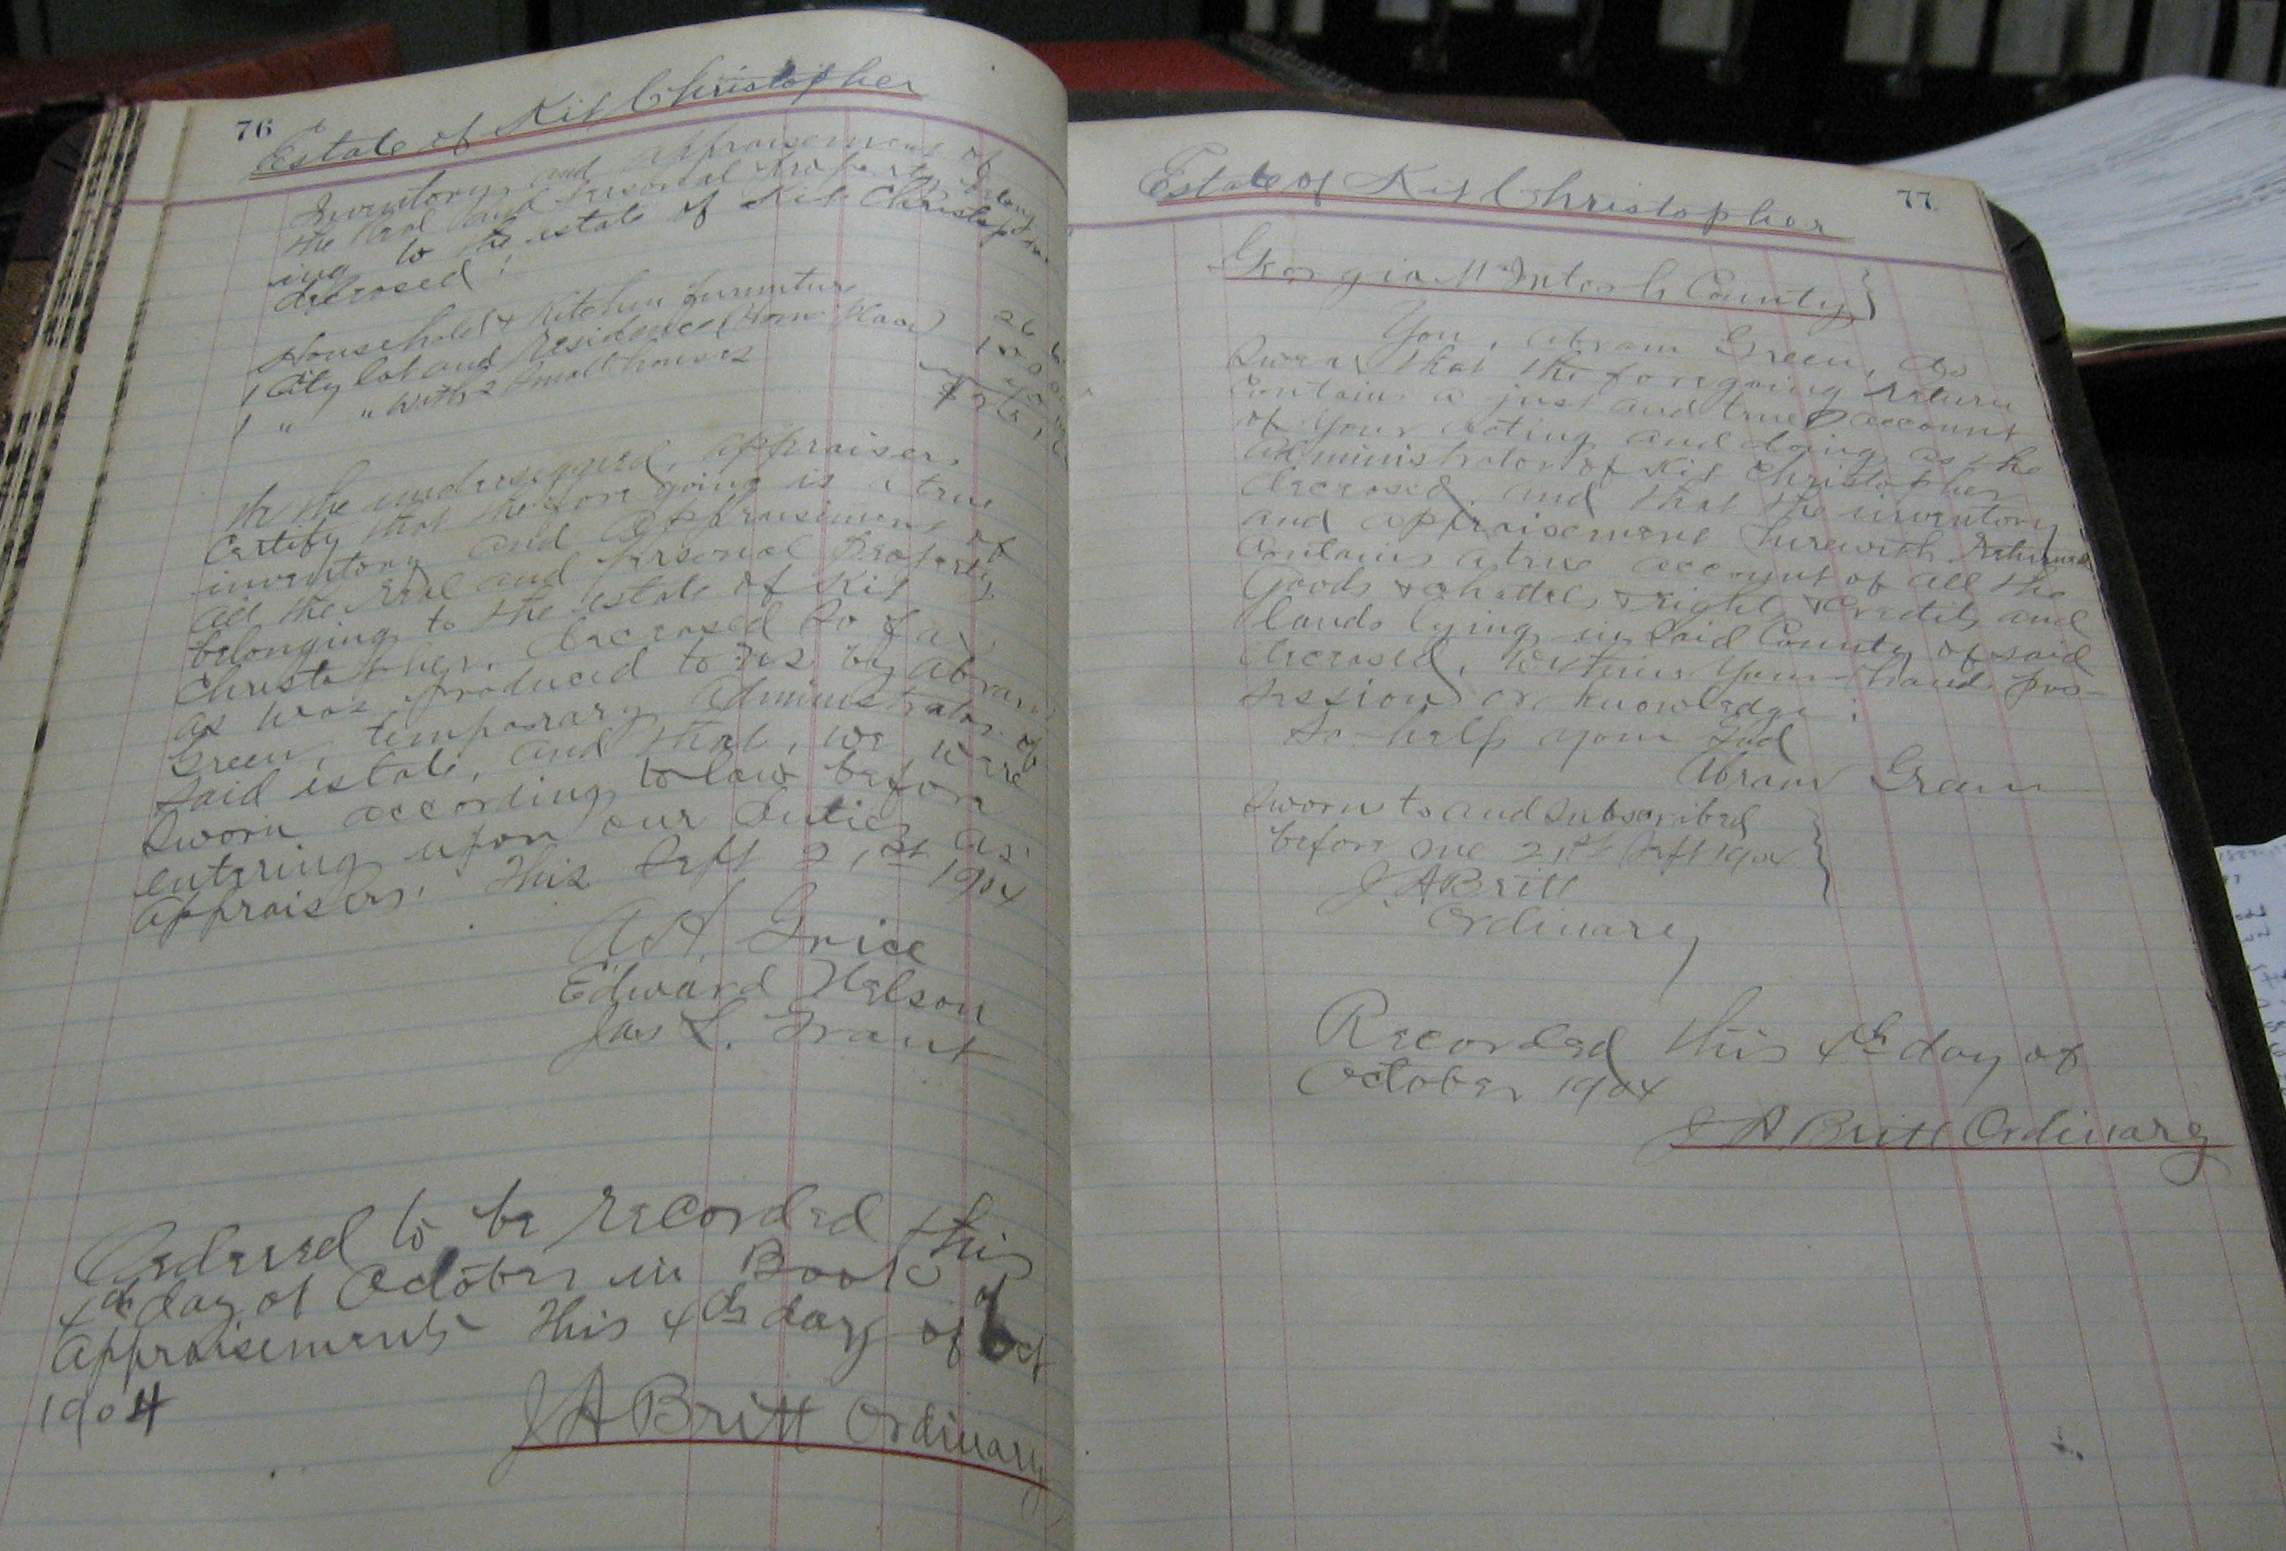 76
Estate of Kit Christopher
Inventory and appraisement of
the real and personal Property belong
ing to the estate of Kit Christopher
deceased:
Household & Kitchen furniture 26
1 City lot and residence 100
1 " " with 2 small houses
$
We the undersigned, appraisers
Certify that the fore going is a true
inventory and appraisement of
all the real and personal Property
belonging to the estate of Kit
Christopher, deceased so far
as was produced to us by Abram
Green, temporary administrator of
said estate, and that, we were
Sworn according to law before
entering upon our duties as
appraisers. This Sept 21st 1904
Grice
Edward Nelson
Jas L. Grant
Ordered to be recorded this
4th day of October in Book C of
appraisements this 4th day of Oct
1904
J A Britt Ordinary
77
Estate of Kit Christopher
Georgia McIntosh County }
You, Abram Green, do
Swear that the foregoing return
contains a just and true account
of your acting and doing as the
administrator of Kit Christopher
deceased, and that the inventory
and appraisement herewith returned
contains a true account of all the
Goods & chattels & rights & credits and
lands lying in said County of said
deceased, within your hands pos-
session or knowledge:
So help you God
Abram Green
Sworn to and subscribed
before me 21st Sept 1904 }
J. A Britt
Ordinary
Recorded this 4th day of
October 1904
J A Britt Ordinary